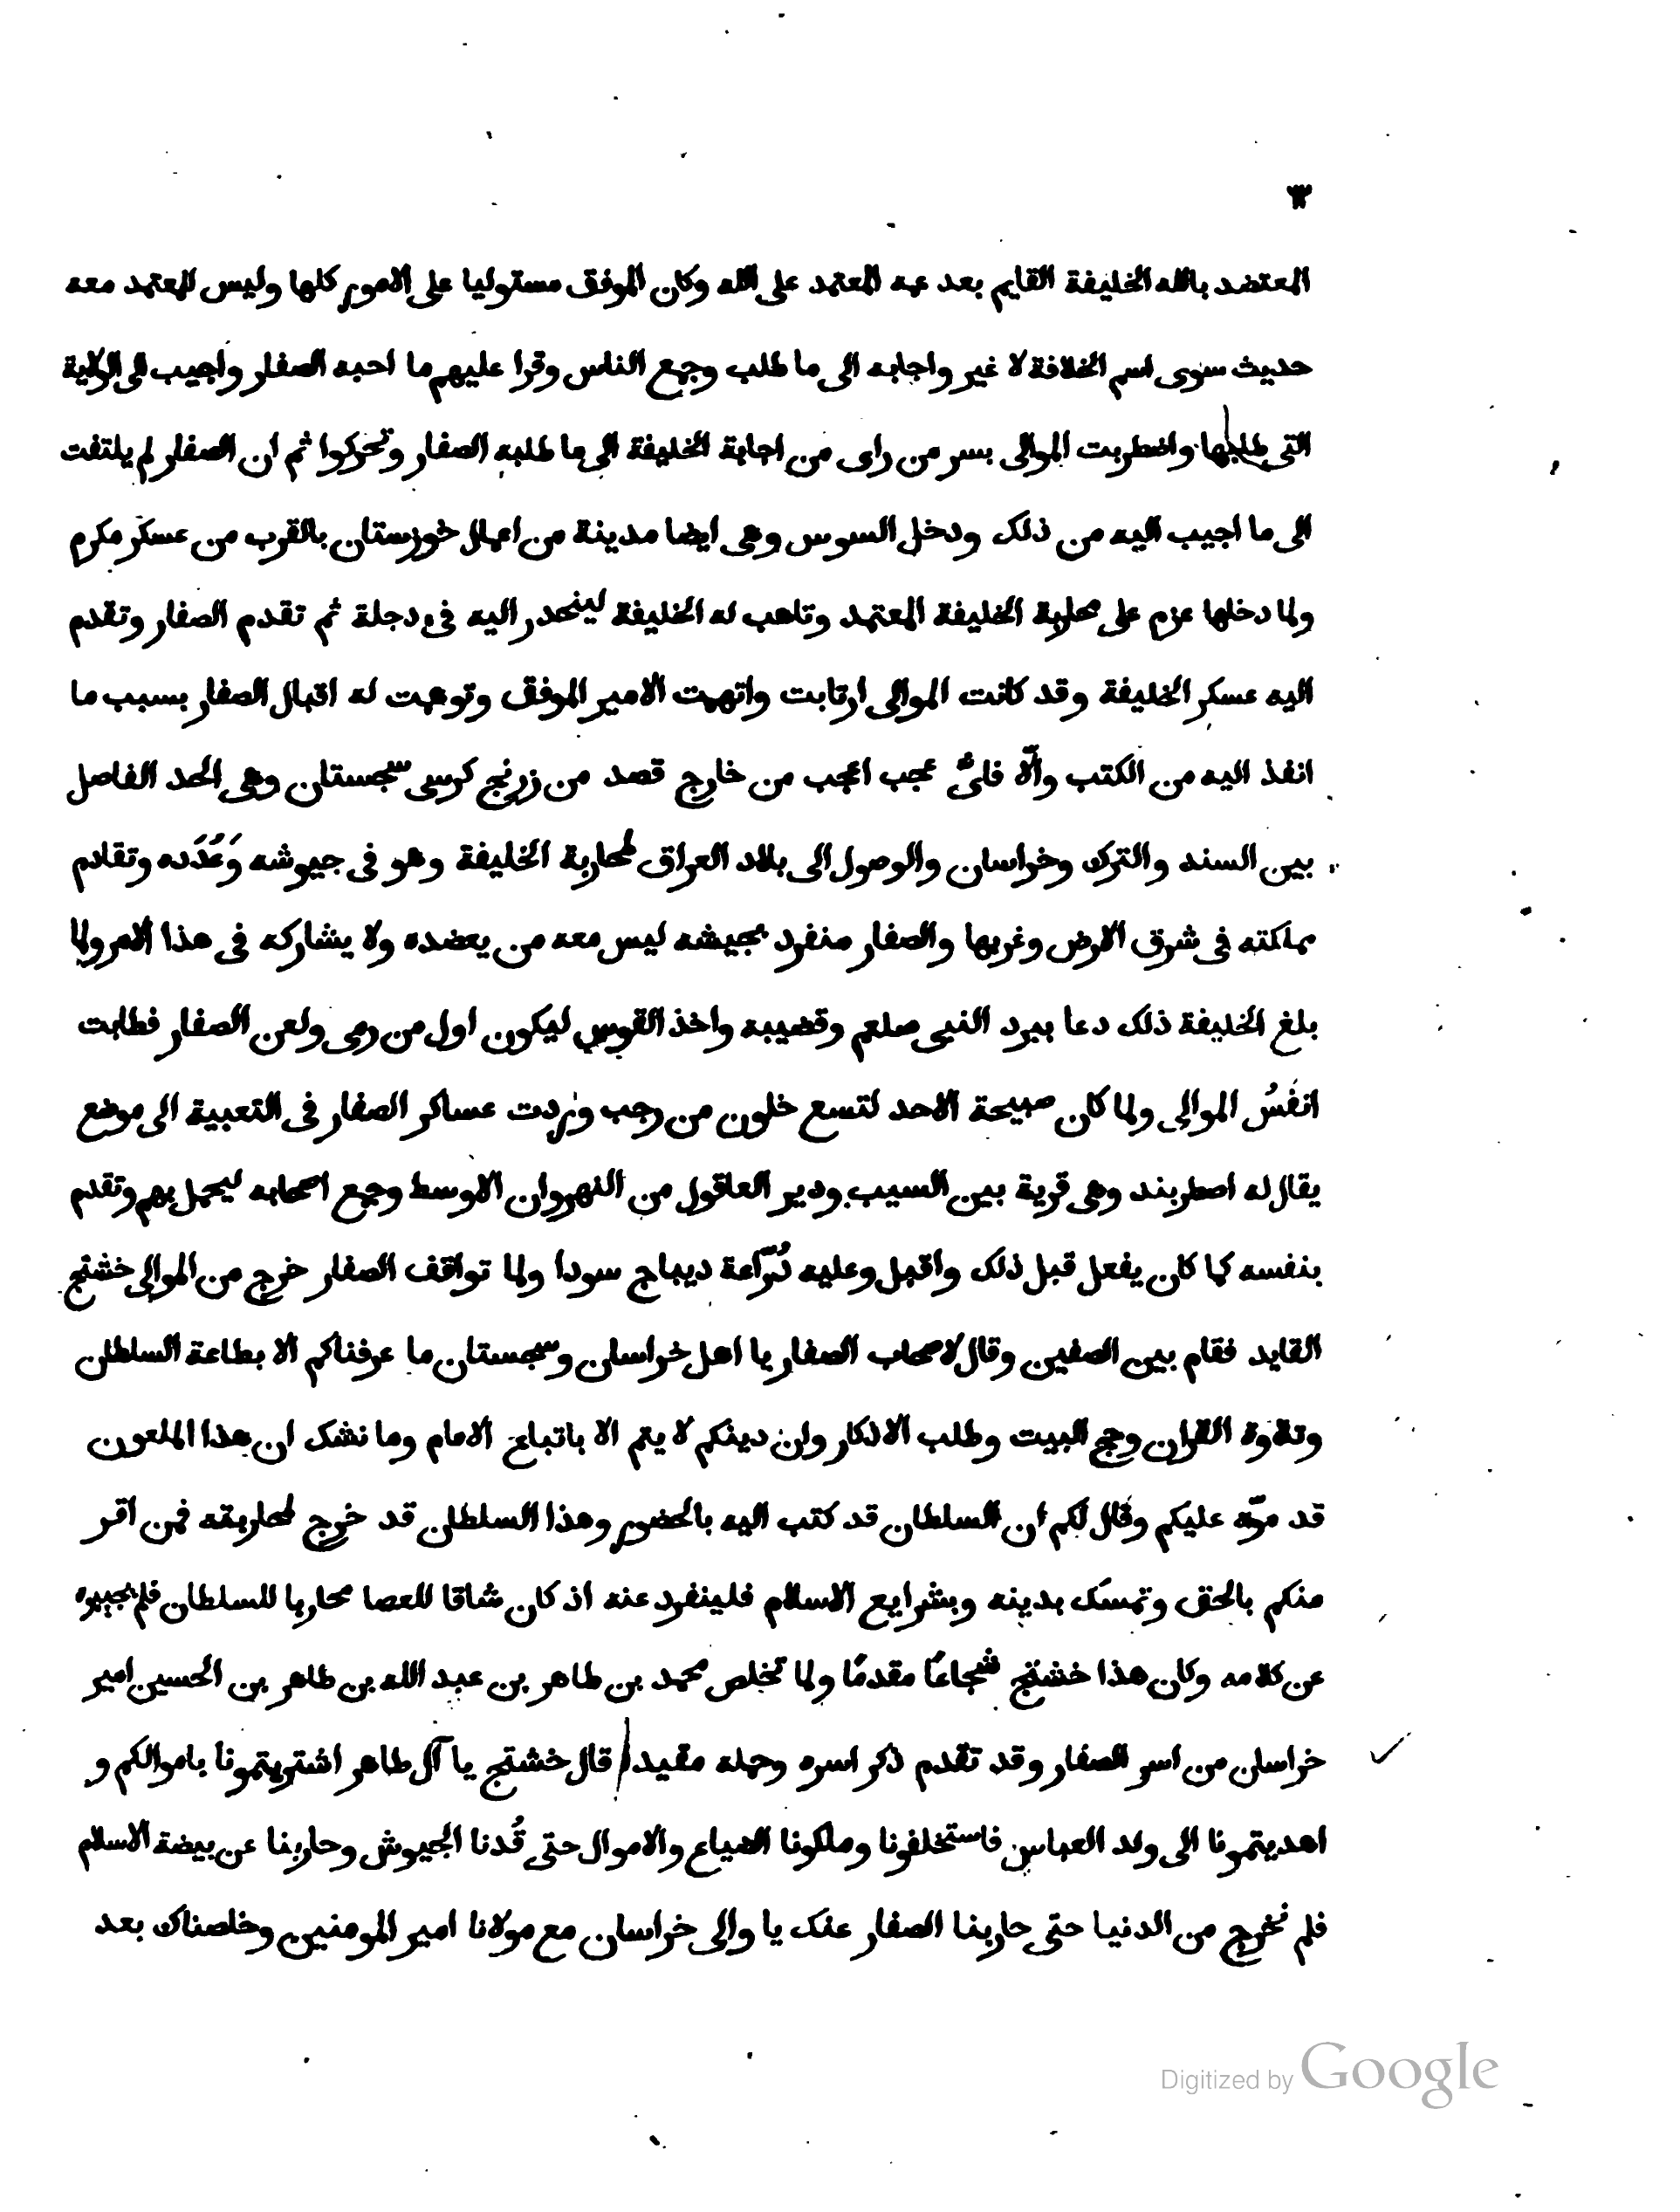 ٣
المعتضد بالله الخليفة القايم بعد عمه المعتمد على الله وكان الموفق مستوليا على الامور كلها وليس للمعتمد معه
حديث سوى اسم الخلافة لا غير واجابه الى ما طلب وجمع الناس وقرا عليهم ما احبه الصفار واجيب الى الولاية
التى طلبها واضطربت الموالى بسر من راى من اجابة الخليفة الى ما طلبه الصفار وتحركوا ثم ان الصفار لم يلتفت
الى ما اجيب اليه من ذلك ودخل السوس وهى ايضا مدينة من اعمال خوزستان بالقرب من عسكر مكرم
ولما دخلها عزم على محاربة الخليفة المعتمد وتاهب له الخليفة لينحدر اليه فى دجلة ثم تقدم الصفار وتقدم
اليه عسكر الخليفة وقد كانت الموالى ارتابت واتهمت الامير الموفق وتوهمت له اقبال الصفار بسبب ما
انفذ اليه من الكتب والّا فاىّ عجب اعجب من خارج قصد من زرنج كرسى سجستان وهى الحد الفاصل
بين السند والترك وخراسان والوصول الى بلاد العراق لمحاربة الخليفة وهو فى جيوشه وَعُدَده وتقادم
مملكته فى شرق الارض وغربها والصفار منفرد بجيشه ليس معه من يعضده ولا يشاركه فى هذا الامر ولما
بلغ الخليفة ذلك دعا ببرد النبى صلعم وقضيبه واخذ القوس ليكون اول من رمى ولعن الصفار فطابت
انفسُ الموالى ولما كان صبيحة الاحد لتسع خلون من رجب وردت عساكر الصفار فى التعبية الى موضع
يقال له اصطربند وهى قرية بين السيب ودير العاقول من النهروان الاوسط وجمع اصحابه ليحمل بهم وتقدم
بنفسه كما كان يفعل قبل ذلك واقبل وعليه دُرّاعة ديباج سودا ولما تواقف الصفار خرج من الموالى خشتج
القايد فقام بين الصفين وقال لاصحاب الصفار يا اهل خراسان وسجستان ما عرفناكم الا بطاعة السلطان
وتلاوة القران وحج البيت وطلب الاذكار وان دينكم لا يتم الا باتباع الامام وما نشك ان هذا الملعون
قد موّه عليكم وقال لكم ان السلطان قد كتب اليه بالحضور وهذا السلطان قد خرج لمحاربته فمن اقر
منكم بالحق وتمسك بدينه وبشرايع الاسلام فلينفرد عنه اذ كان شاقا للعصا محاربا للسلطان فلم يجيبوه
عن كلامه وكان هذا خشتج شجاعًا مقدمًا ولما تخلص محمد بن طاهر بن عبد الله بن طاهر بن الحسين امير
خراسان من اسر الصفار وقد تقدم ذكر اسره وحمله مقيدا قال خشتج يا آل طاهر اشتريتمونا باموالكم و
اهديتمونا الى ولد العباس فاستخلفونا وملكونا الضياع والاموال حتى قُدنا الجيوش وحاربنا عن بيضة الاسلام
فلم نخرج من الدنيا حتى حاربنا الصفار عنك يا والى خراسان مع مولانا امير المومنين وخلصناك بعد
Digitized by Google